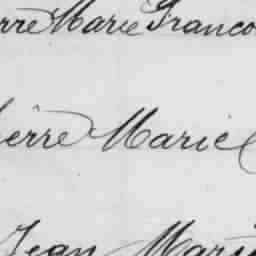 erre Marie Franco
ierre Marie
Jean Marie